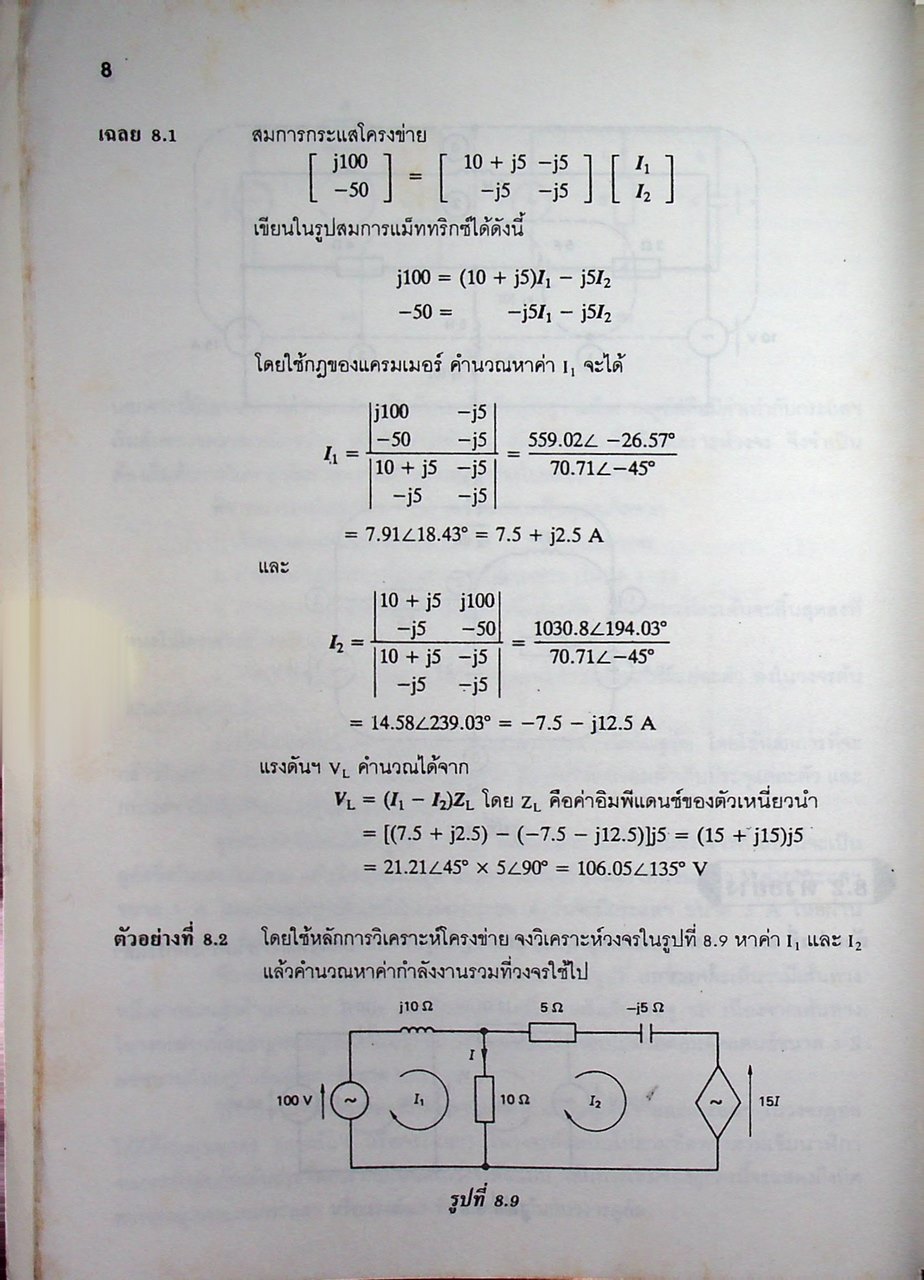 8
เฉลย 8.1 สมการกระแสโครงข่าย
[ j100 ] = [ 10 + j5 −j5 ] [ I₁ ]
[ −50 ] [ −j5 −j5 ] [ I₂ ]
เขียนในรูปสมการแม็ททริกซ์ได้ดังนี้
j100 = (10 + j5)I₁ − j5I₂
−50 = −j5I₁ − j5I₂
โดยใช้กฎของแครมเมอร์ คำนวณหาค่า I₁ จะได้
|j100 −j5|
|−50 −j5|
I₁ = = 559.02∠ −26.57° / 70.71∠−45°
|10 + j5 −j5|
|−j5 −j5|
= 7.91∠18.43° = 7.5 + j2.5 A
และ
|10 + j5 j100|
|−j5 −50|
I₂ = = 1030.8∠194.03° / 70.71∠−45°
|10 + j5 −j5|
|−j5 −j5|
= 14.58∠239.03° = −7.5 − j12.5 A
แรงดันฯ V_L คำนวณได้จาก
V_L = (I₁ − I₂)Z_L โดย Z_L คือค่าอิมพีแดนซ์ของตัวเหนี่ยวนำ
= [(7.5 + j2.5) − (−7.5 − j12.5)]j5 = (15 + j15)j5
= 21.21∠45° × 5∠90° = 106.05∠135° V
ตัวอย่างที่ 8.2 โดยใช้หลักการวิเคราะห์โครงข่าย จงวิเคราะห์วงจรในรูปที่ 8.9 หาค่า I₁ และ I₂
แล้วคำนวณหาค่ากำลังงานรวมที่วงจรใช้ไป
j10 Ω 5 Ω −j5 Ω
I
100 V ~ I₁ 10 Ω I₂ ~ 15I
รูปที่ 8.9